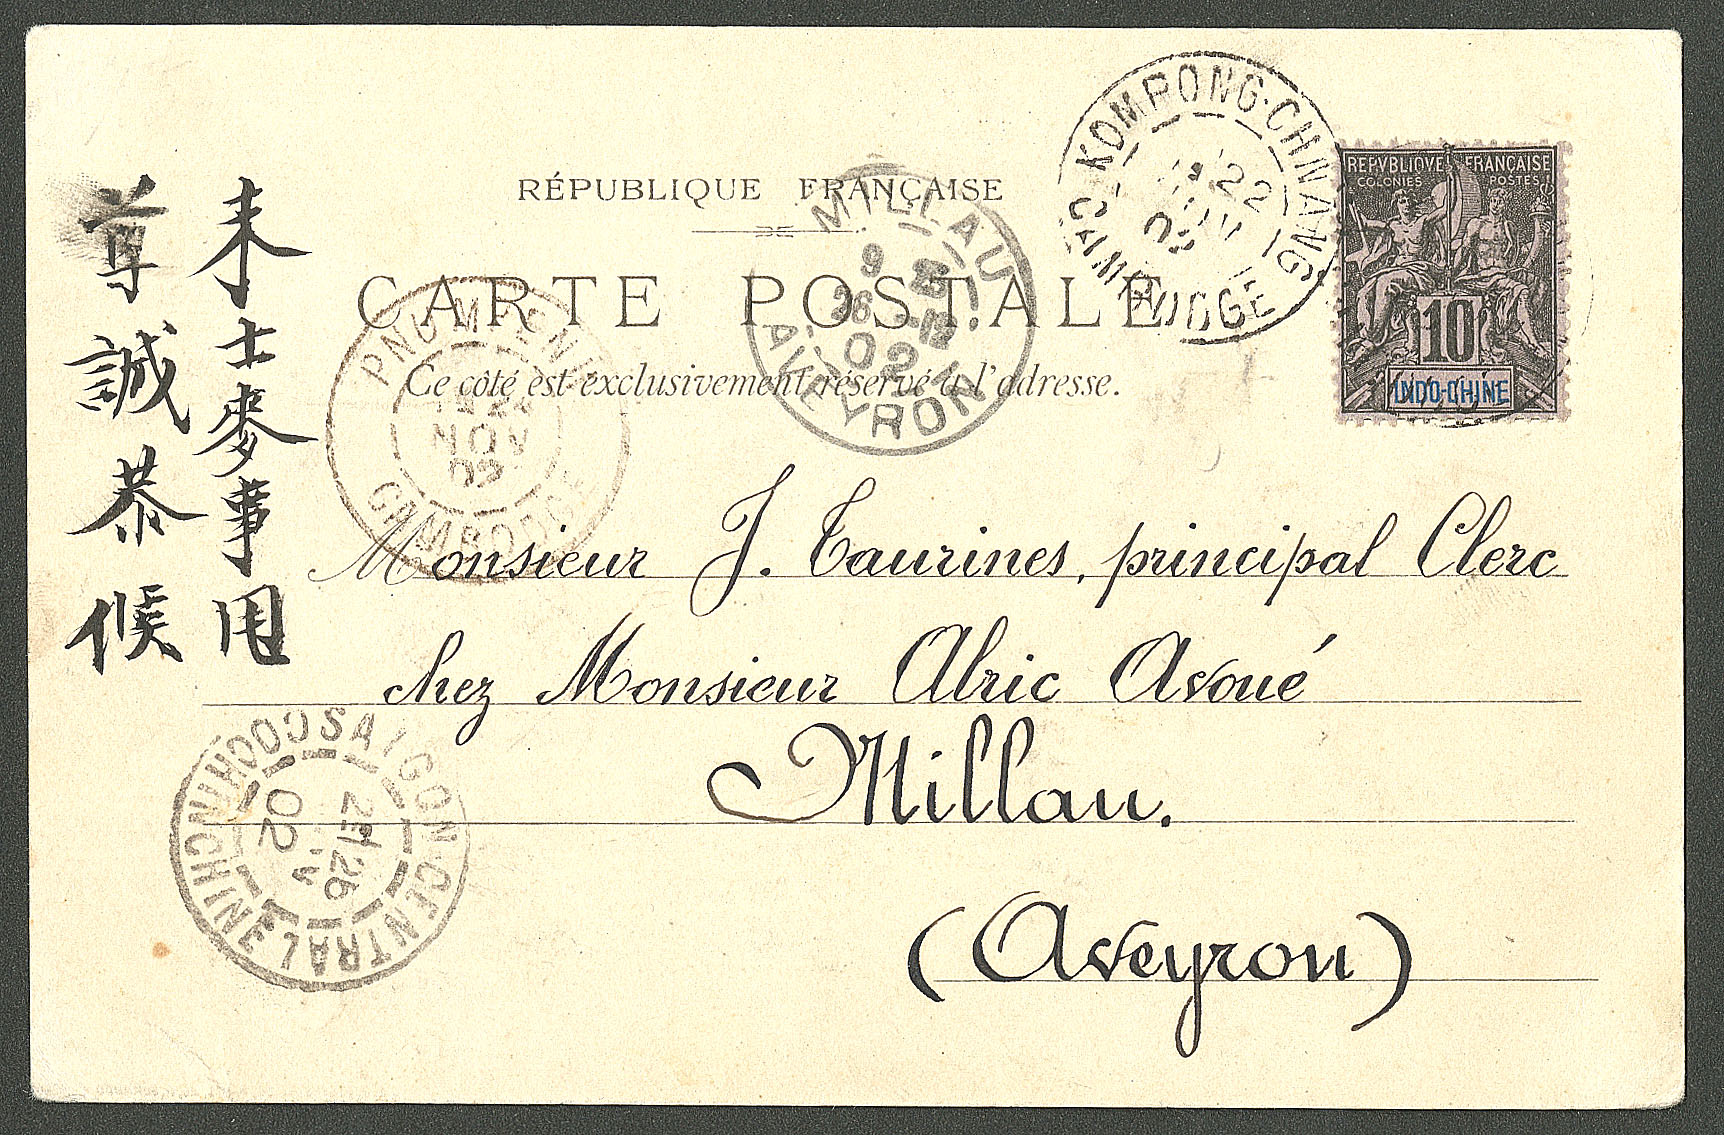 RÉPUBLIQUE FRANÇAISE
CARTE POSTALE
Ce côté est exclusivement réservé à l'adresse.
KOMPONG-CHNANG
22
CAMBODGE
REPVBLIQVE FRANCAISE
COLONIES POSTES
10
INDO-CHINE
MILLAU
9 26
02
AVEYRON
PNUM-PENH
NOV
02
CAMBODGE
士麥事用
尊誠恭候
Monsieur J. Taurines, principal Clerc
chez Monsieur Alric Avoué
Millau.
(Aveyron)
SAIGON-CENTRAL
26
02
COCHINCHINE